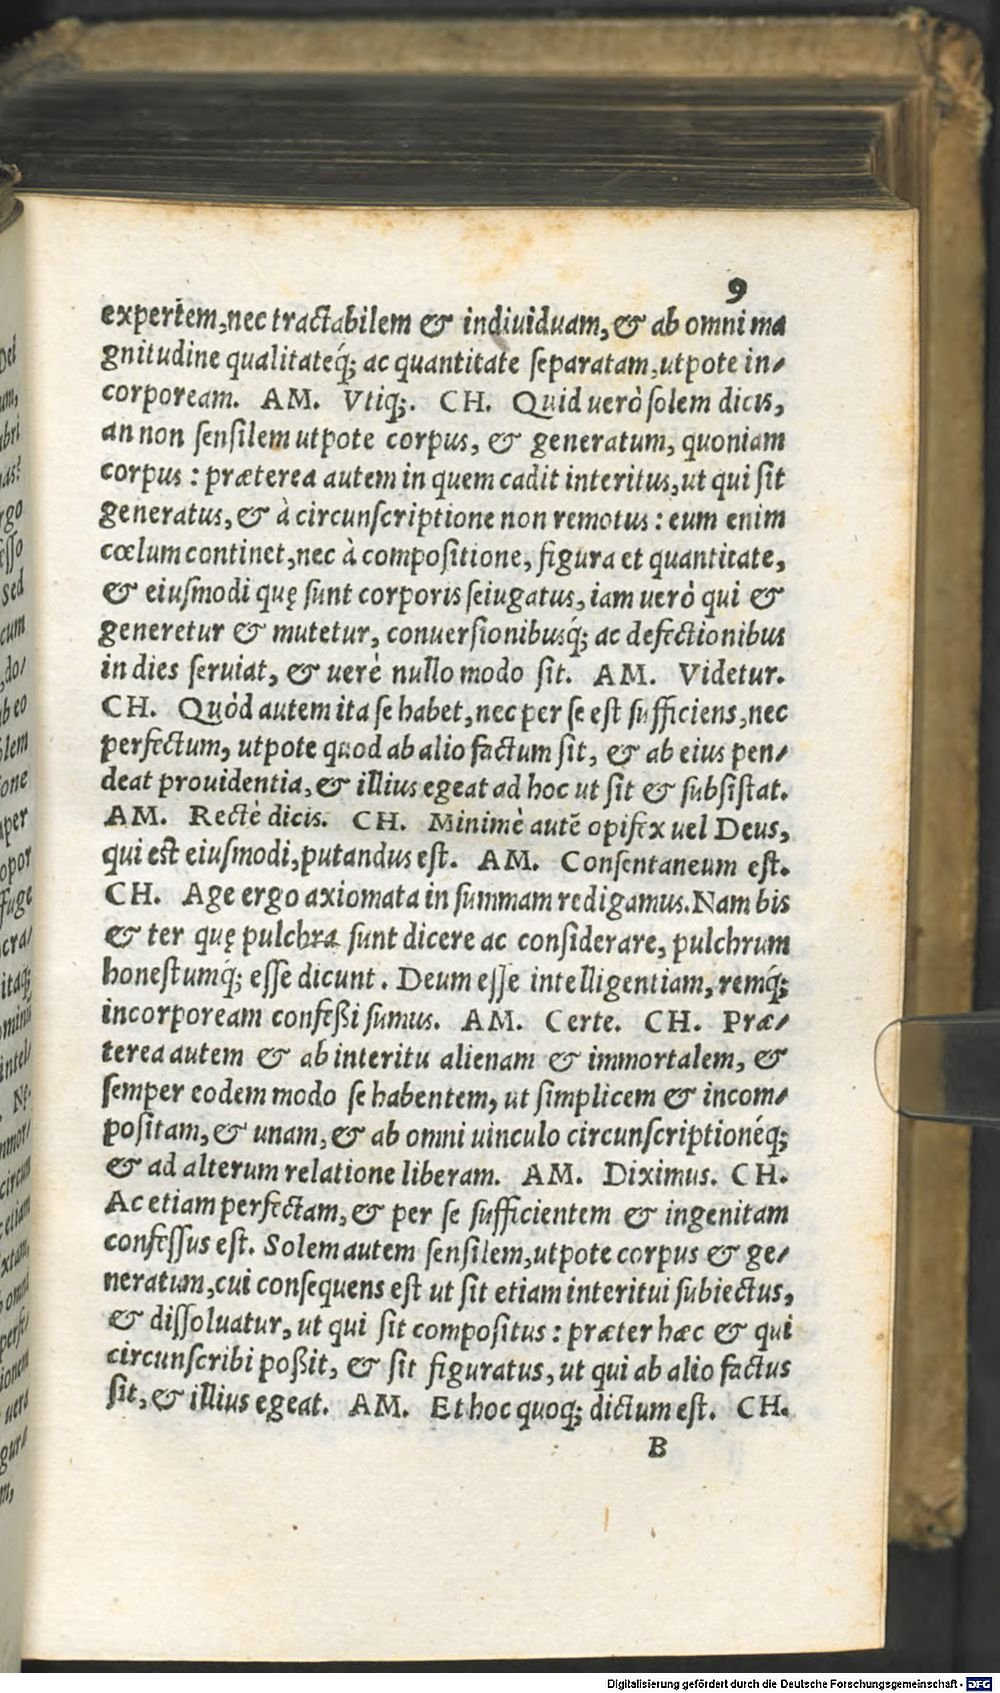 9
expertem, nec tractabilem & indiuiduam, & ab omni ma
gnitudine qualitateq́; ac quantitate separatam, utpote in⸗
corpoream. AM. Vtiq;. CH. Quid uerò solem dicis,
an non sensilem utpote corpus, & generatum, quoniam
corpus : præterea autem in quem cadit interitus, ut qui sit
generatus, & à circunscriptione non remotus : eum enim
cœlum continet, nec à compositione, figura et quantitate,
& eiusmodi quę sunt corporis seiugatus, iam uerò qui &
generetur & mutetur, conuersionibusq́; ac defectionibus
in dies seruiat, & uerè nullo modo sit. AM. Videtur.
CH. Quòd autem ita se habet, nec per se est sufficiens, nec
perfectum, utpote quod ab alio factum sit, & ab eius pen⸗
deat prouidentia, & illius egeat ad hoc ut sit & subsistat.
AM. Rectè dicis. CH. Minimè autẽ opifex uel Deus,
qui est eiusmodi, putandus est. AM. Consentaneum est.
CH. Age ergo axiomata in summam redigamus. Nam bis
& ter quę pulchra sunt dicere ac considerare, pulchrum
honestumq́; esse dicunt. Deum esse intelligentiam, remq́;
incorpoream confeßi sumus. AM. Certe. CH. Præ⸗
terea autem & ab interitu alienam & immortalem, &
semper eodem modo se habentem, ut simplicem & incom⸗
positam, & unam, & ab omni uinculo circunscriptionéq;
& ad alterum relatione liberam. AM. Diximus. CH.
Ac etiam perfectam, & per se sufficientem & ingenitam
confessus est. Solem autem sensilem, utpote corpus & ge⸗
neratum, cui consequens est ut sit etiam interitui subiectus,
& dissoluatur, ut qui sit compositus : præter hæc & qui
circunscribi poßit, & sit figuratus, ut qui ab alio factus
sit, & illius egeat. AM. Et hoc quoq; dictum est. CH.
B
Digitalisierung gefördert durch die Deutsche Forschungsgemeinschaft - DFG